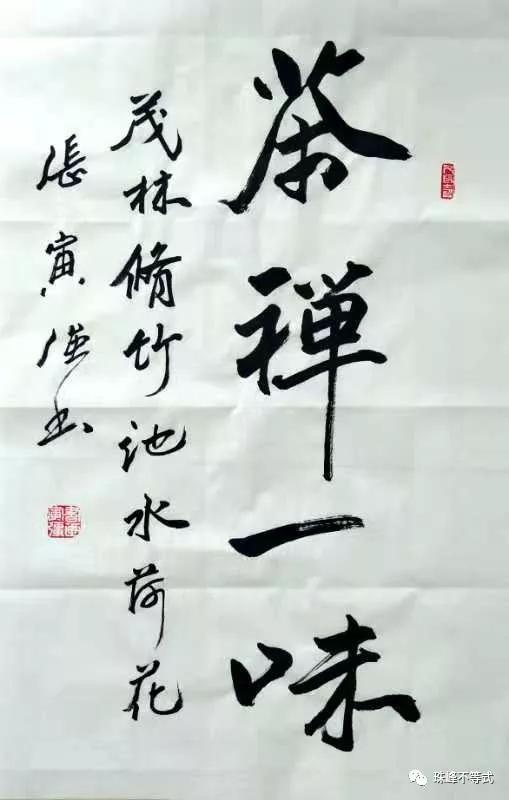 茶禅一味
茂林脩竹池水荷花
張寅书
珠峰不等式